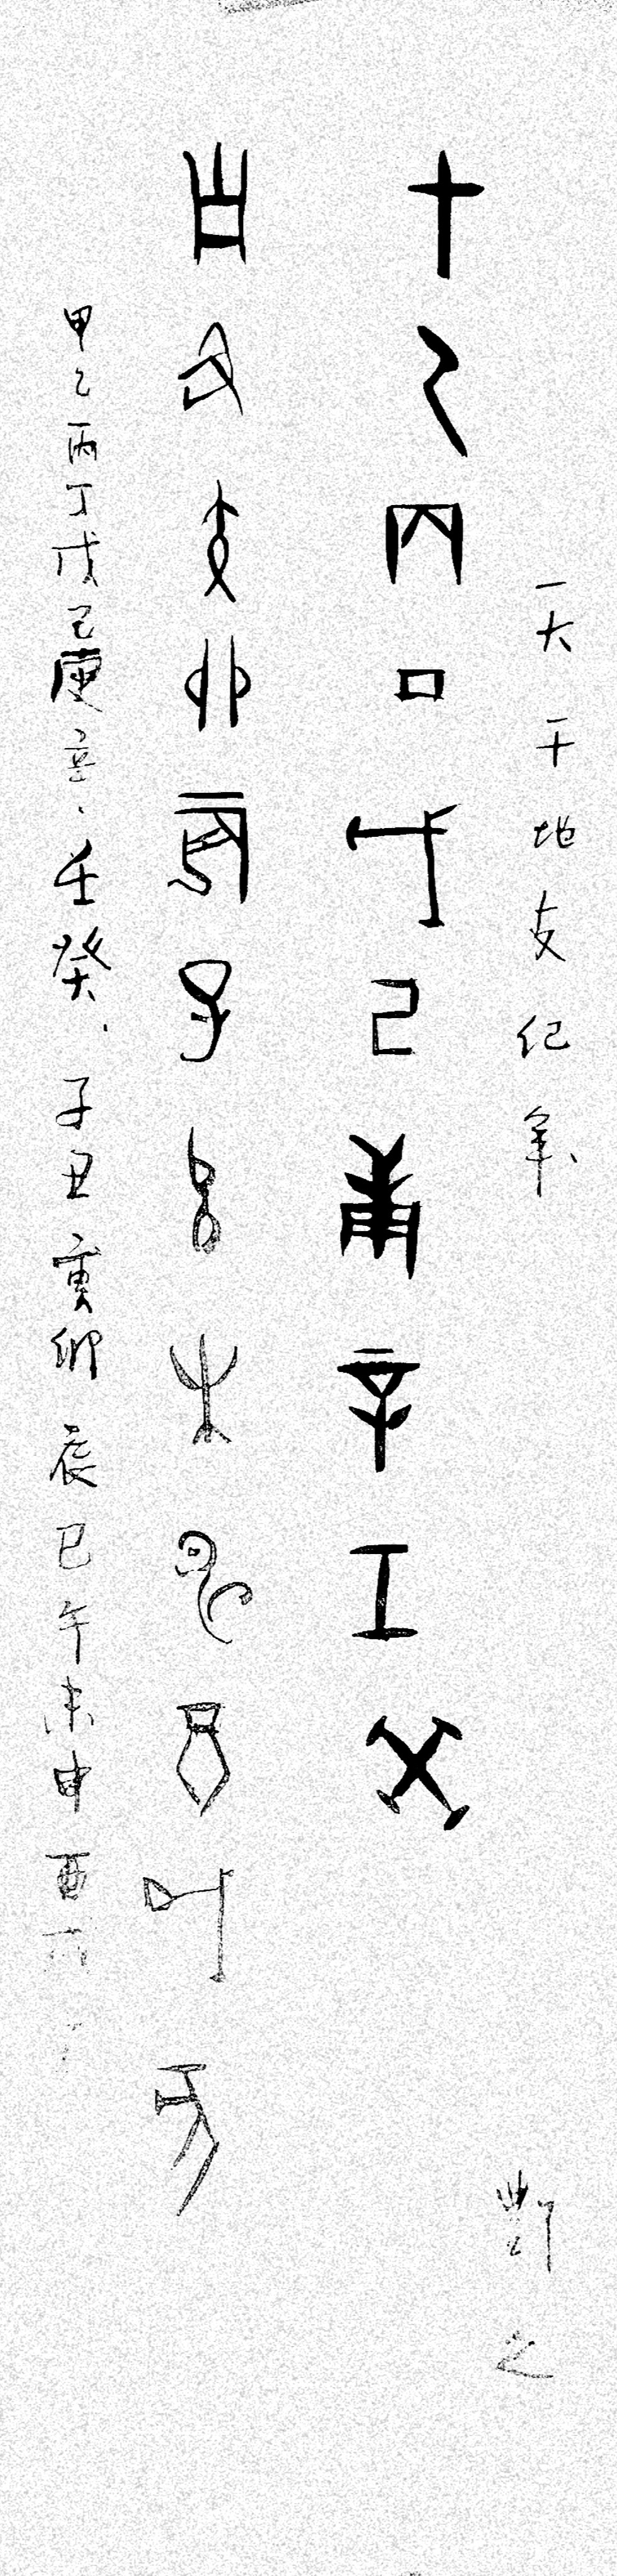 天干地支纪年
甲乙丙丁戊己庚辛壬癸
子丑寅卯辰巳午未申酉戌亥
甲乙丙丁戊己庚辛、壬癸、子丑寅卯辰巳午未申酉戌